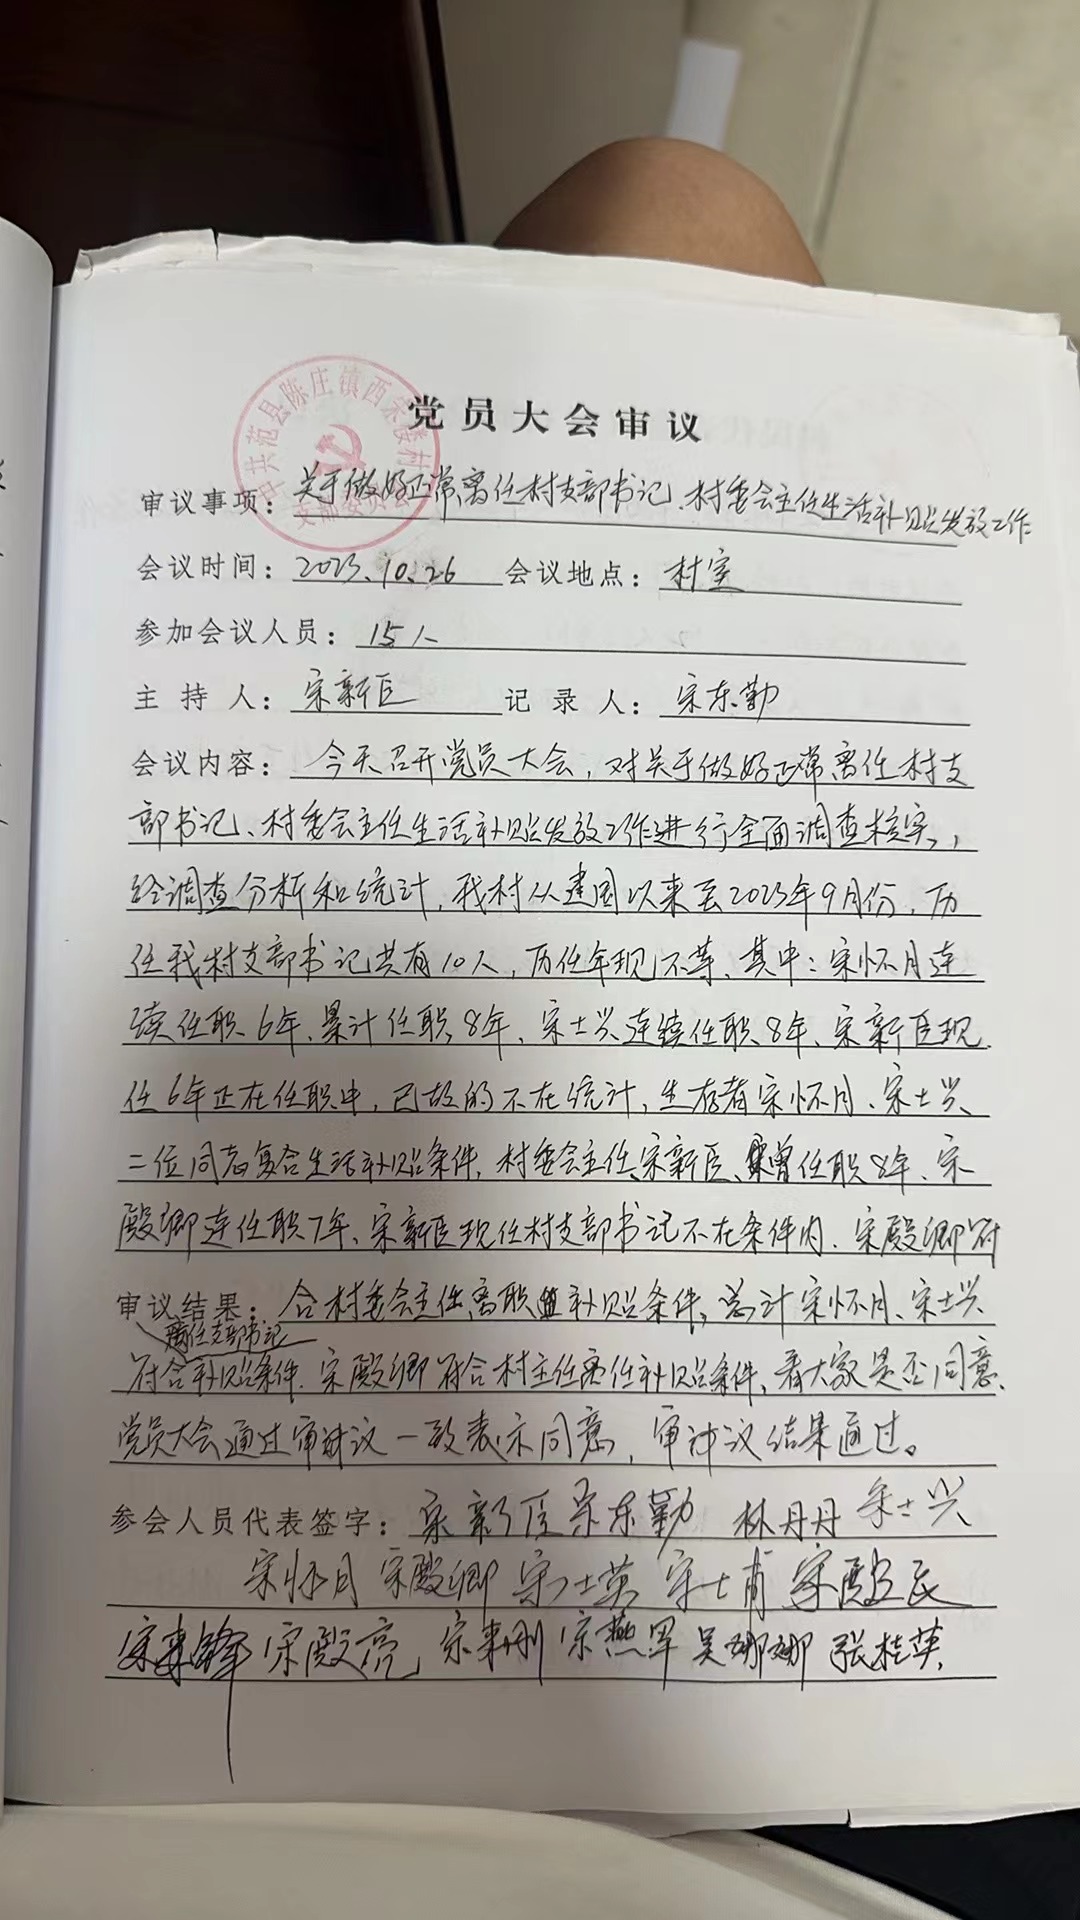 党员大会审议
中共范县陈庄镇西宋楼村
支部委员会
审议事项：关于做好正常离任村支部书记、村委会主任生活补贴发放工作
会议时间：2023.10.26 会议地点：村室
参加会议人员：15人
主持人：宋新臣 记录人：宋东勤
会议内容：今天召开党员大会，对关于做好正常离任村支
部书记、村委会主任生活补贴发放工作进行全面调查核实，
经调查分析和统计，我村从建国以来至2023年9月份，历
任我村支部书记共有10人，历任年现不等、其中：宋怀月连
续任职6年、累计任职8年、宋士兴连续任职8年、宋新臣现
任6年正在任职中，已故的不在统计，生存者宋怀月、宋士兴、
二位同志复合生活补贴条件，村委会主任宋新臣、曾任职8年、宋
殿卿连任职7年、宋新臣现任村支部书记不在条件内、宋殿卿符
审议结果：合村委会主任离职补贴条件，总计宋怀月、宋士兴
离任支部书记
符合补贴条件、宋殿卿符合村主任离任补贴条件，看大家是否同意、
党员大会通过审计议一致表示同意，审计议结果通过。
参会人员代表签字：宋新臣 宋东勤 林丹丹 宋士兴
宋怀月 宋殿卿 宋士英 宋士甫 宋殿民
宋来锋 宋殿亮 宋来刚 宋燕军 吴娜娜 张桂英